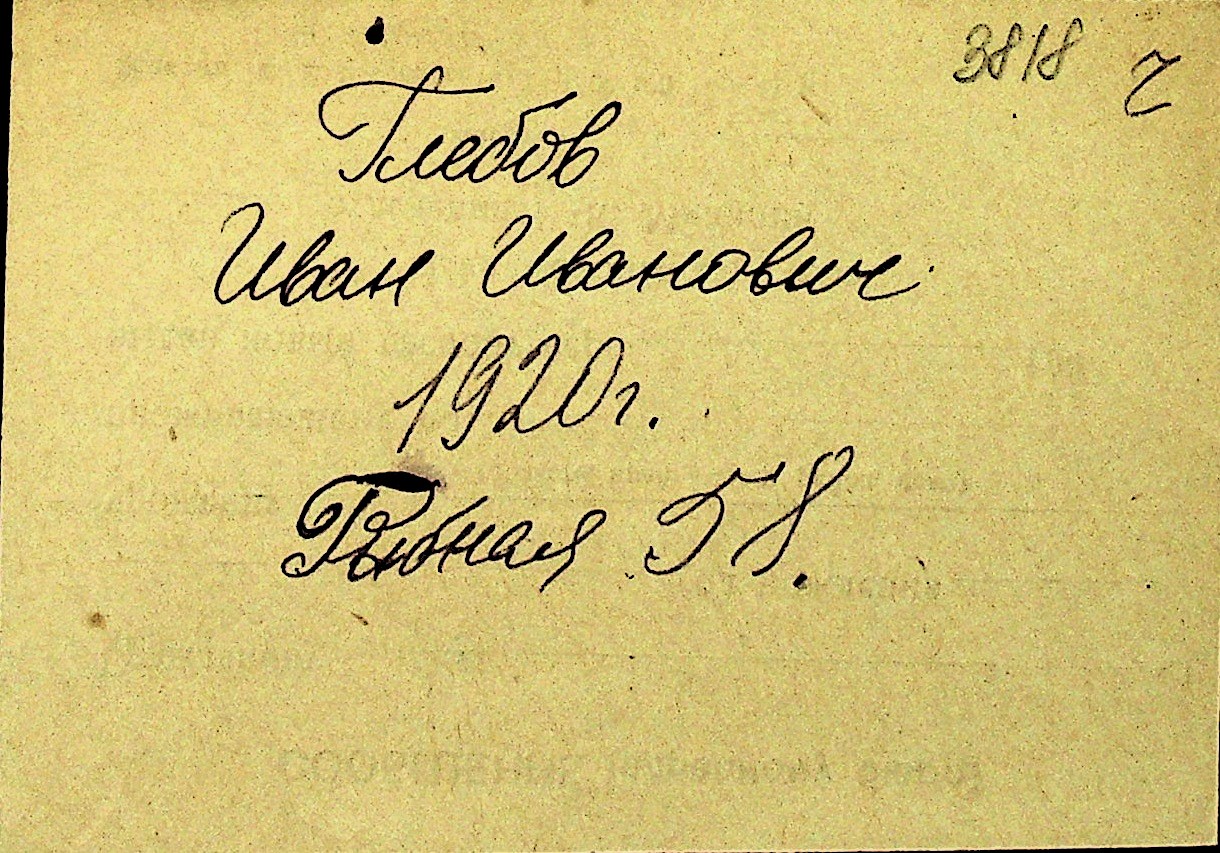 3818
Глебов
Иван Иванович
1920г.
Рыбная 58.